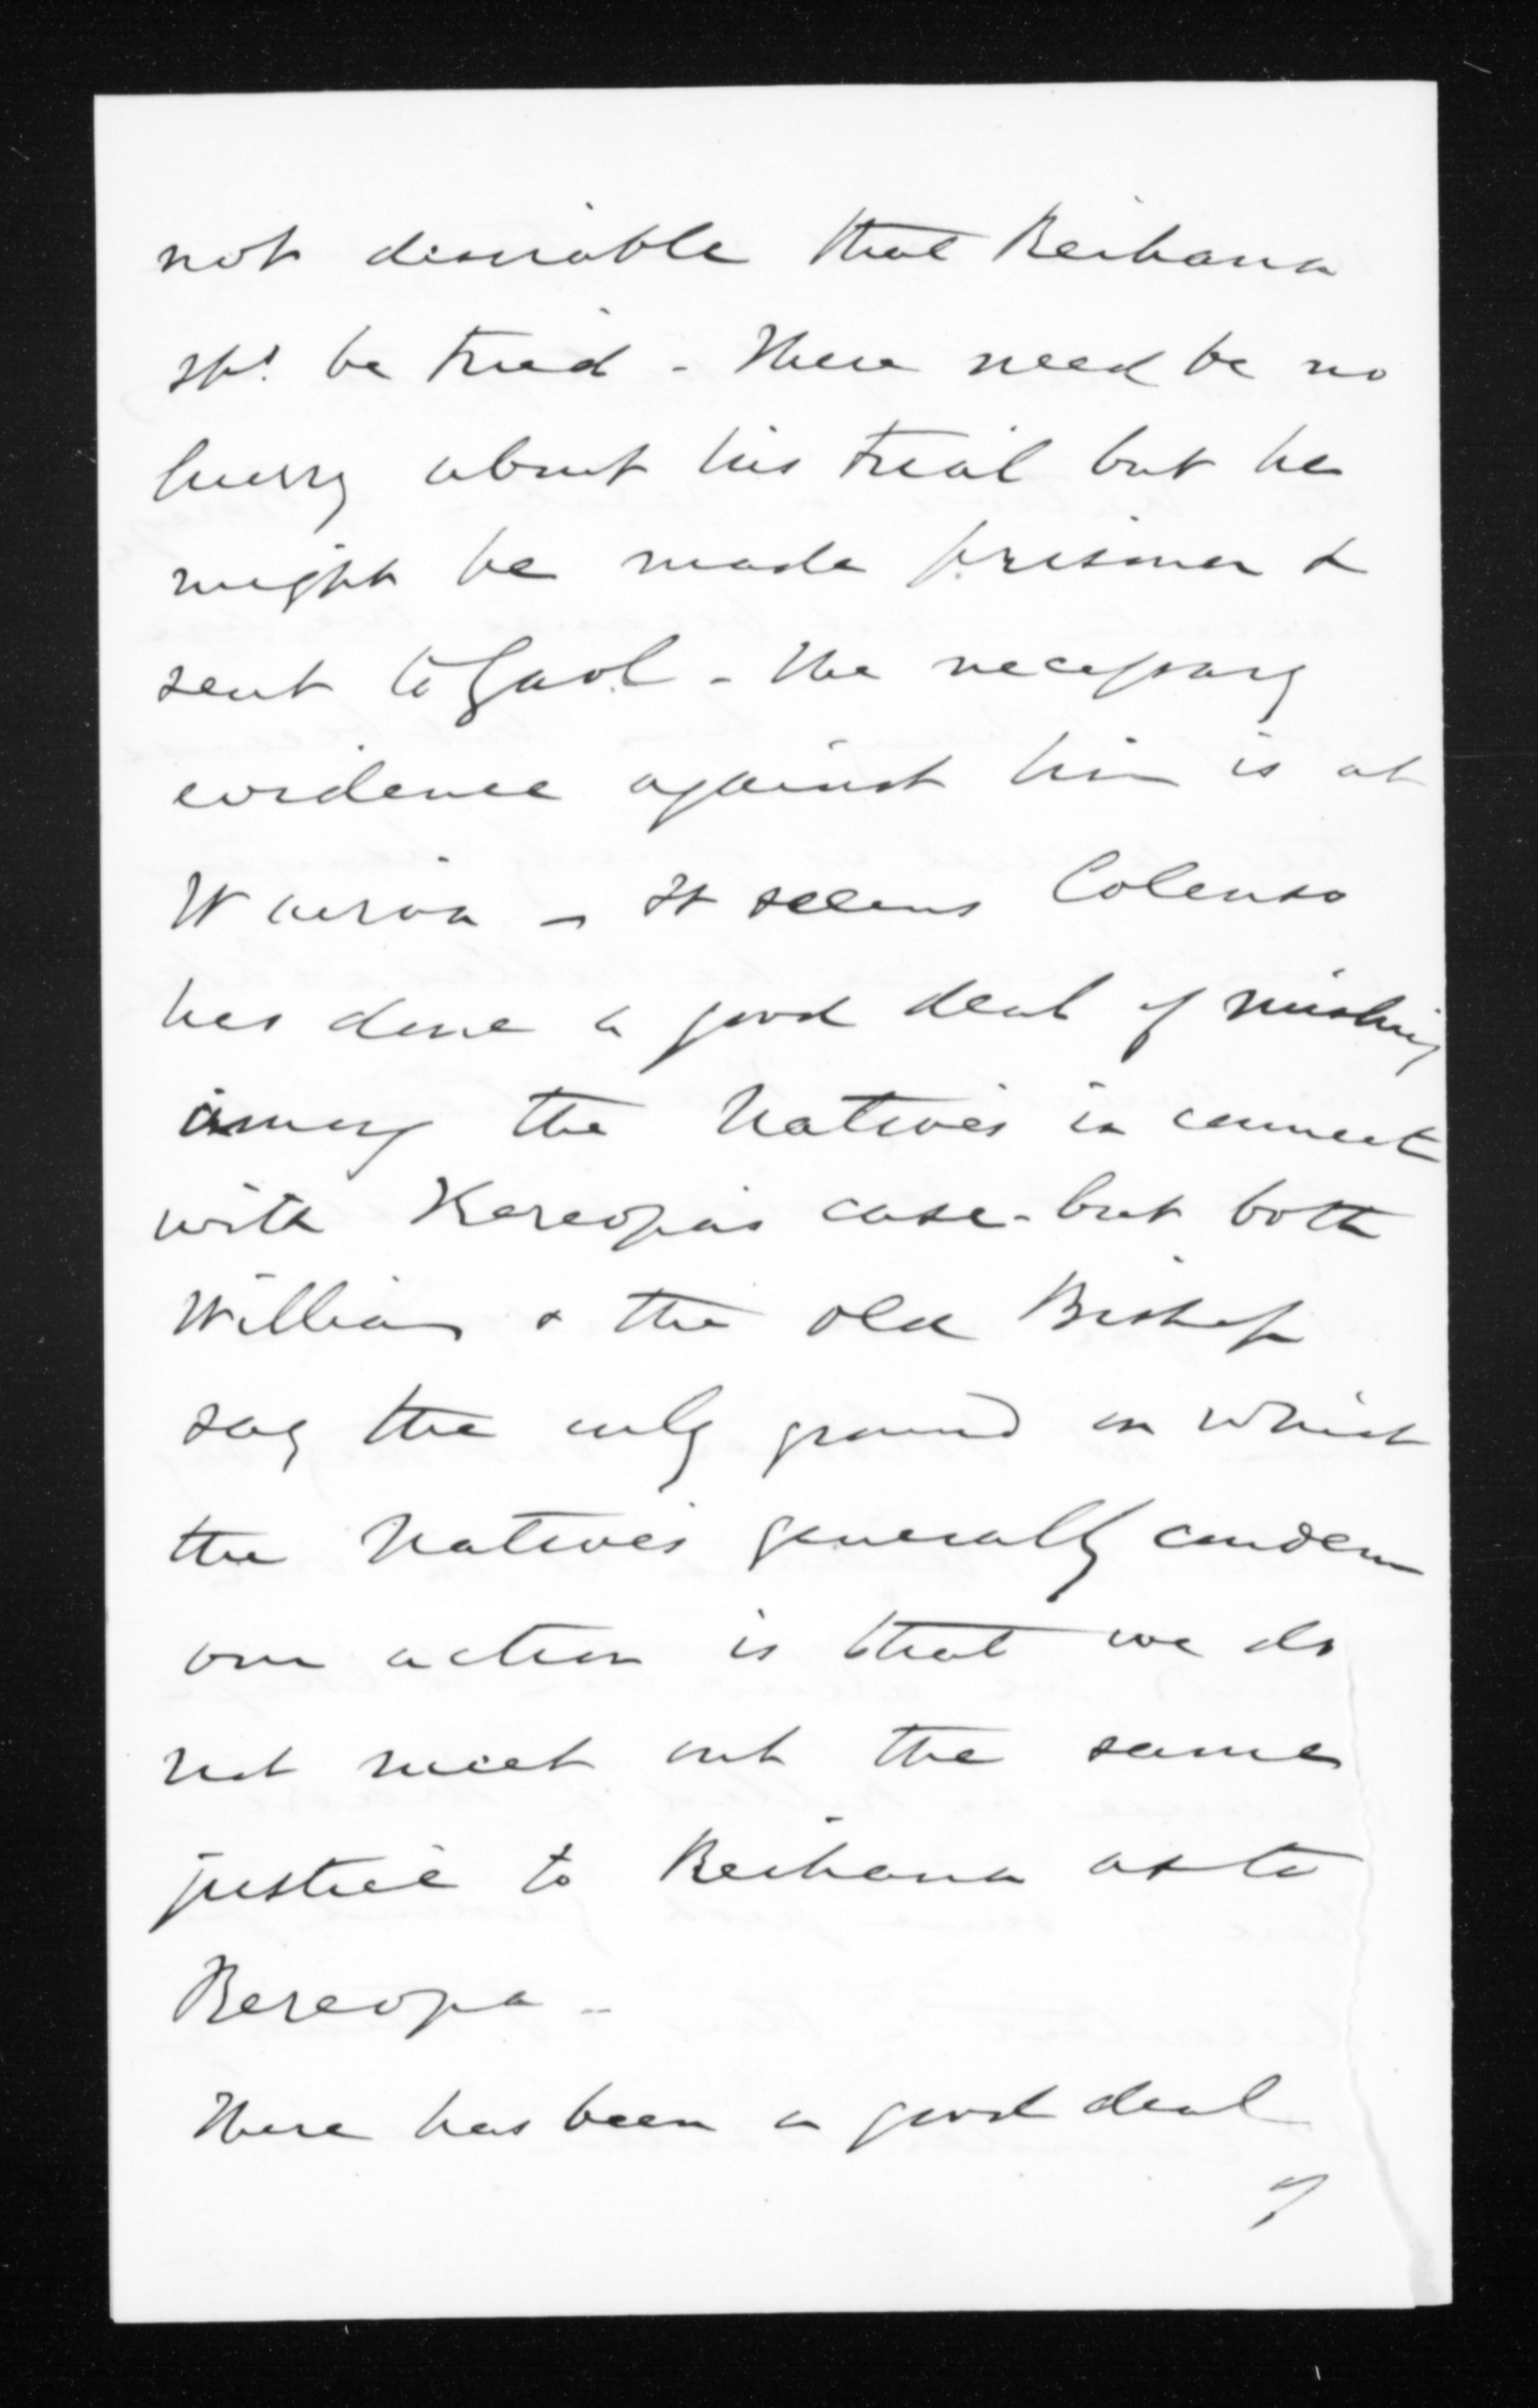 not desirable that Reihana
shd. be tried - There need be no
hurry about his trial but he
might be made prisoner &
sent to Gaol - The necessary
evidence against him is at
Wairoa - It seems Colenso
has done a good deal of
among the Natives in connect
with Kereopa's case - but both
William & the old Bishop
say the only ground on which
the Natives generally condemn
our action is that we do
not meet out the same
justice to Reihana as to
Kereopa -
There has been a good deal
of